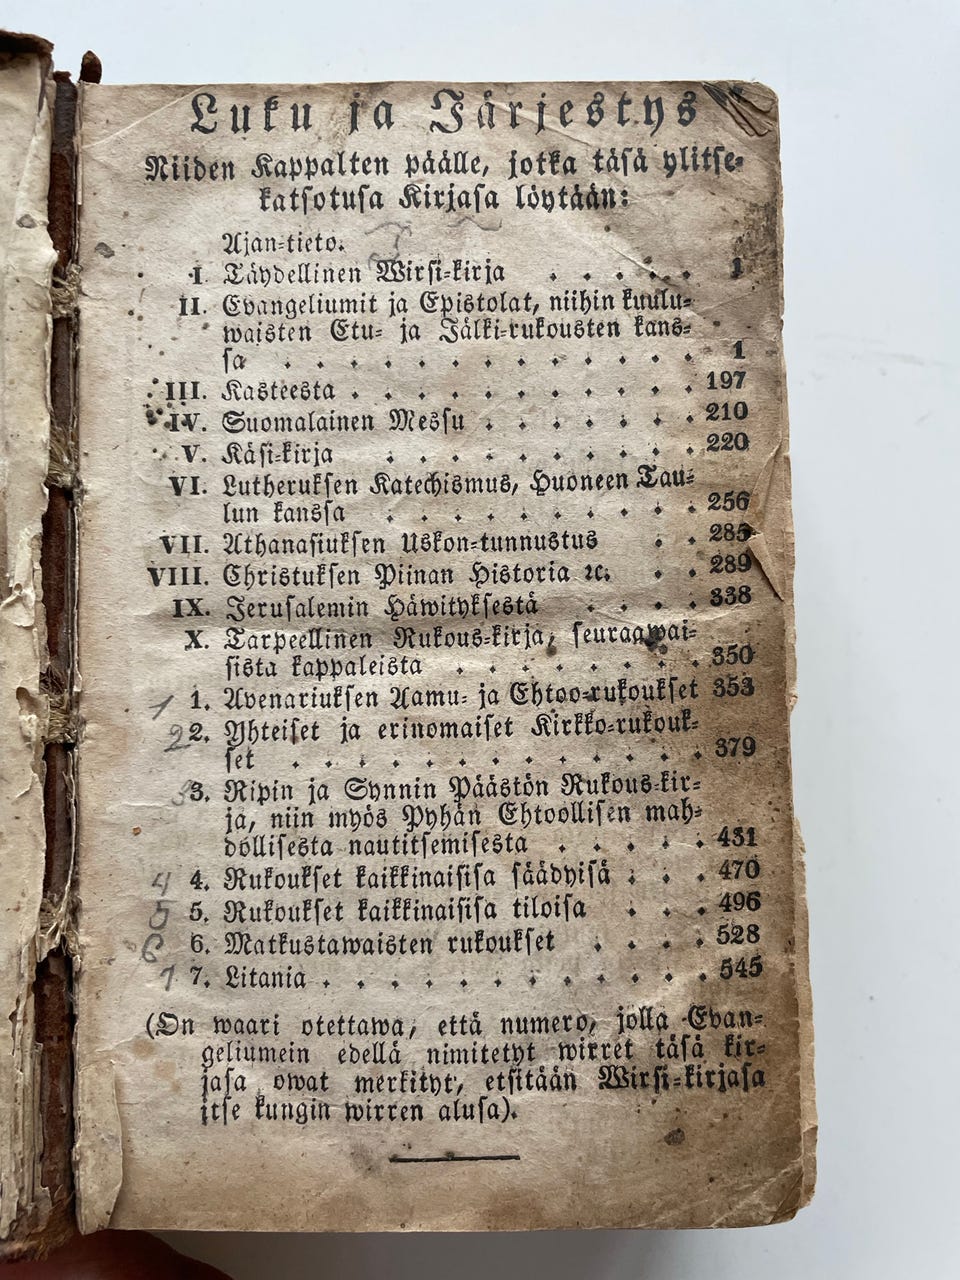 Luku ja Järjestys
Niiden Kappalten päälle, jotka täsä ylitse-
katsotusa Kirjasa löytään:
Ajan-tieto.
I. Täydellinen Wirsi-kirja . . . . . 1
II. Evangeliumit ja Epistolat, niihin kuulu-
waisten Etu- ja Jälki-rukousten kans-
sa . . . . . . . . . . . . . 1
III. Kasteesta . . . . . . . . . . . 197
IV. Suomalainen Messu . . . . . . . 210
V. Käsi-kirja . . . . . . . . . . 220
VI. Lutheruksen Katechismus, Huoneen Tau-
lun kanssa . . . . . . . . . . 256
VII. Athanasiuksen Uskon-tunnustus . . 285
VIII. Christuksen Piinan Historia ꝛc. . . 289
IX. Jerusalemin Häwityksestä . . . . 338
X. Tarpeellinen Rukous-kirja, seuraawai-
sista kappaleista . . . . . . . . 350
1 1. Avenariuksen Aamu- ja Ehtoo-rukoukset 353
2 2. Yhteiset ja erinomaiset Kirkko-rukouk-
set . . . . . . . . . . . . 379
3 3. Ripin ja Synnin Päästön Rukous-kir-
ja, niin myös Pyhän Ehtoollisen mah-
dollisesta nautitsemisesta . . . . . 431
4 4. Rukoukset kaikkinaisisa säädyisä . . . 470
5 5. Rukoukset kaikkinaisisa tiloisa . . . 496
6 6. Matkustawaisten rukoukset . . . . 528
7 7. Litania . . . . . . . . . . . . 545
(On waari otettawa, että numero, jolla Evan-
geliumein edellä nimitetyt wirret täsä kir-
jasa owat merkityt, etsitään Wirsi-kirjasa
itse kungin wirren alusa).